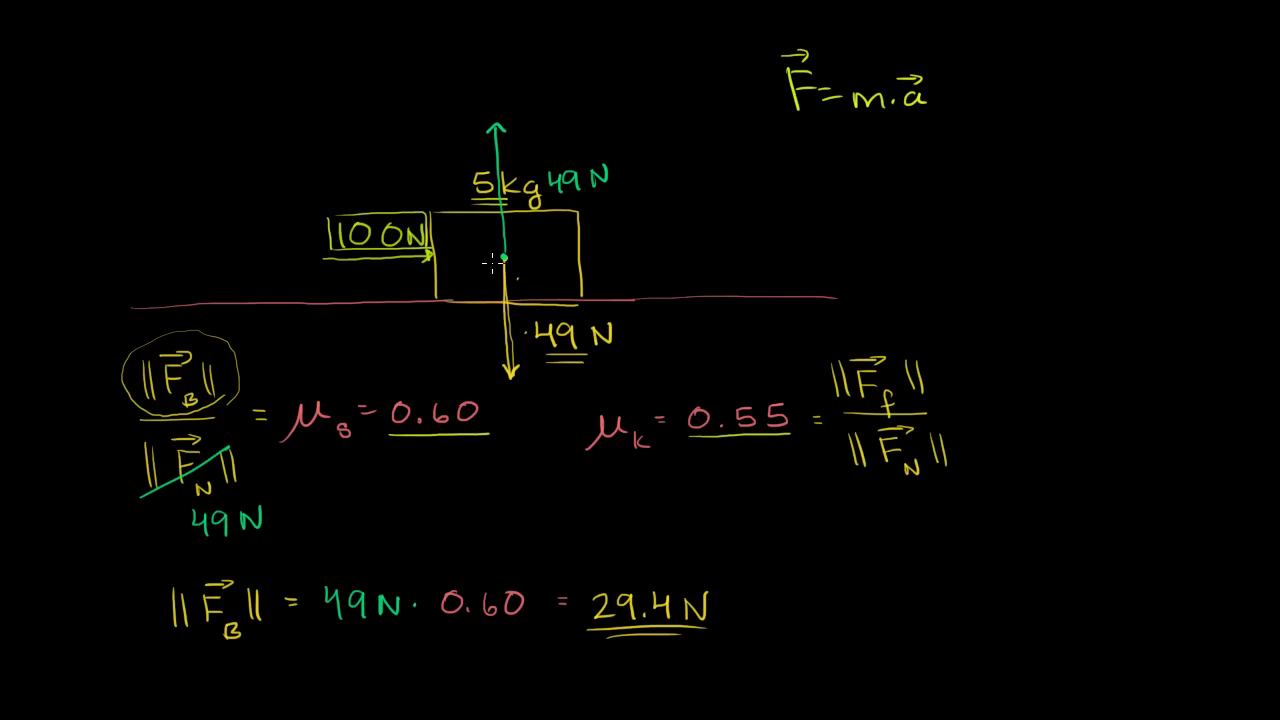 F⃗ = m·a⃗
5 kg 49 N
100N
49 N
||F⃗_B|| / ||F⃗_N|| = μ_s = 0.60
μ_k = 0.55 = ||F⃗_f|| / ||F⃗_N||
49 N
||F⃗_B|| = 49 N · 0.60 = 29.4 N